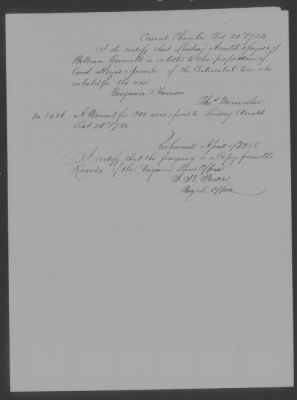 Council Chamber Oct 20th 1784
I do certify that Lindsay Arnold assignee of
William Garrett is entitled to the proportion of
land allowed a private of the Continental line who
enlisted for the war
Benjamin Harrison
Thos Meriwether
No 3686 A Warrant for 200 acres issued to Lindsay Arnold
Richmond April 1855
I certify that the foregoing is a copy from the
Records of the Virginia Land Office
Reg. L. Office